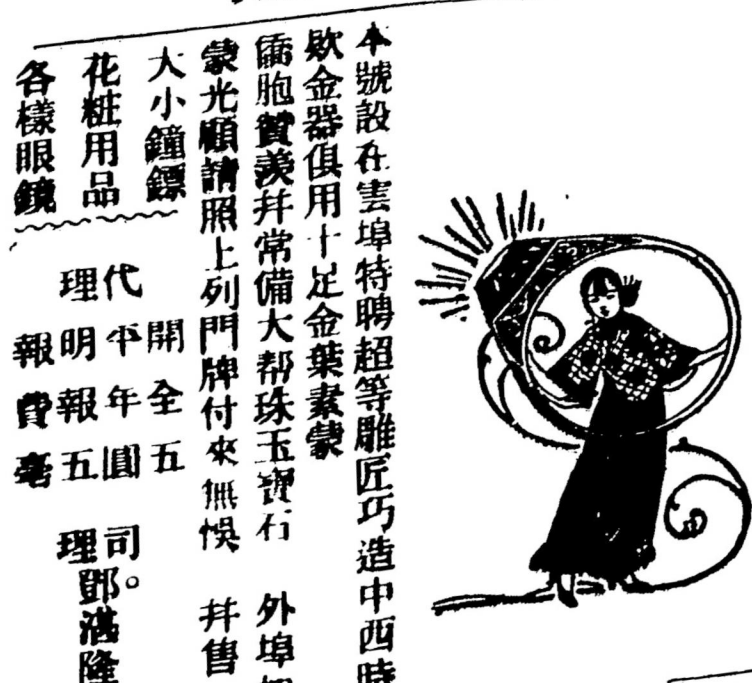 本號設在雲埠特聘超等雕匠巧造中西時
欵金器俱用十足金葉素蒙
僑胞賛羡并常備大帮珠玉寶石 外埠
蒙光顧請照上列門牌付來無悞 并售
大小鐘鏢
花粧用品
各樣眼鏡
代理
開平明報
全年報費
五圓五毫
司理。
鄧 隆